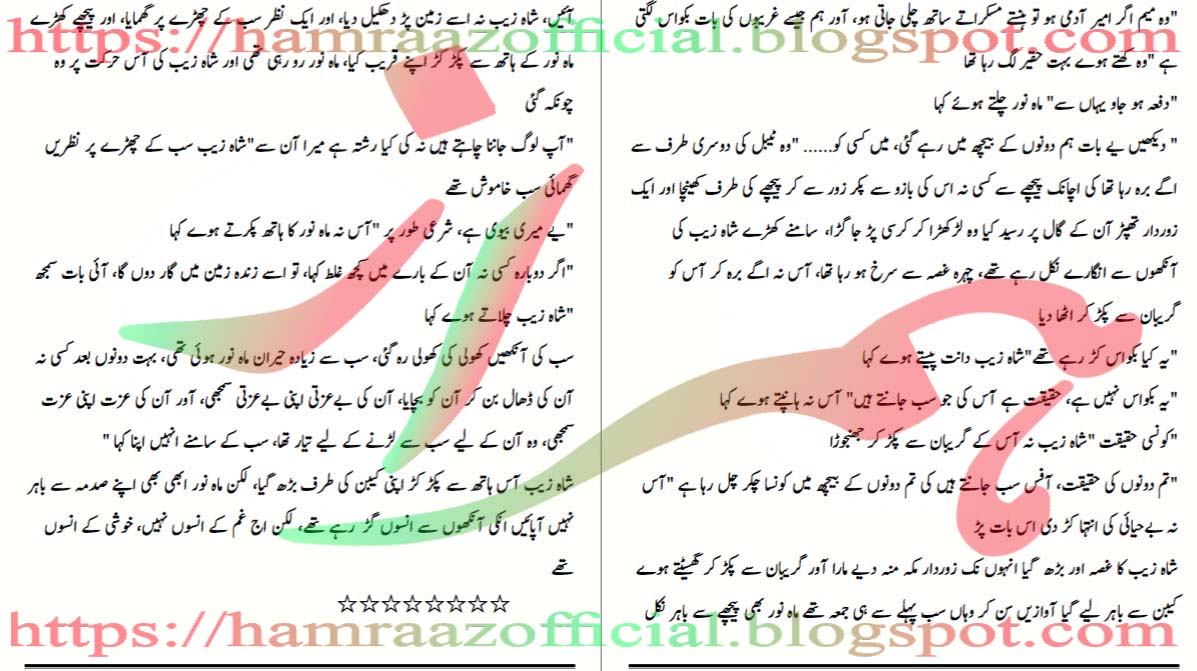 https://hamraazofficial.blogspot.com
"وہ میم اگر امیر آدمی ہو تو ہنستے مسکراتے ساتھ چلی جاتی ہو، آور ہم جیسے غریبوں کی بات بکواس لگتی
ہے "وہ کھتے ہوے بہت حقیر لگ رہا تھا
"دفعہ ہو جاو یہاں سے" ماہ نور چلتے ہوئے کہا
" دیکھیں یے بات ہم دونوں کے بیچھ میں رہے گئی، میں کسی کو...... "وہ ٹیبل کی دوسری طرف سے
اگے برہ رہا تھا کی اچانک پیچھے سے کسی نہ اس کی بازو سے پکر زور سے کر پیچھے کی طرف کھینچا اور ایک
زوردار تھپڑ آن کے گال پر رسید کیا وہ لڑکھڑا کر کرسی پڑ جا گڑا، سامنے کھڑے شاہ زیب کی
آنکھوں سے انگارے نکل رہے تھے، چہرہ غصہ سے سرخ ہو رہا تھا، آس نہ اگے برہ کر آس کو
گریبان سے پکڑ کر اٹھا دیا
"یہ کیا بکواس کڑ رہے تھے"شاہ زیب دانت پیستے ہوے کہا
"یہ بکواس نہیں ہے، حقیقت ہے آس کی جو سب جانتے ہیں" آس نہ ہانپتے ہوے کہا
"کونسی حقیقت "شاہ زیب نہ آس کے گریبان سے پکڑ کر جھنجوڑا
"تم دونوں کی حقیقت، آفس سب جانتے ہیں کی تم دونوں کے بیچھ میں کونسا چکر چل رہا ہے "آس
نہ بےحیائی کی انتہا کڑ دی اس بات پڑ
شاہ زیب کا غصہ اور بڑھ گیا انہوں نک زوردار مکہ منہ دیے مارا آور گریبان سے پکڑ کر گھسیٹتے ہوے
کیبن سے باہر لیے گیا آوازیں سن کر وہاں سب پہلے سے ہی جمعہ تھے ماہ نور بھی پیچھے سے باہر نکل
آئیں، شاہ زیب نہ اسے زمین پڑ دھکیل دیا، اور ایک نظر سب کے چھڑے پر گھمایا، اور پیچھے کھڑے
ماہ نور کے ہاتھ سے پکڑ کڑ اپنے قریب کیا، ماہ نور رو رہی تھی اور شاہ زیب کی آس حرکت پر وہ
چونکہ گئی
"آپ لوگ جاننا چاہتے ہیں نہ کی کیا رشتہ ہے میرا آن سے"شاہ زیب سب کے چھڑے پر نظریں
گھمائی سب خاموش تھے
"یے میری بیوی ہے، شرعی طور پر "آس نہ ماہ نور کا ہاتھ پکرتے ہوے کہا
"اگر دوبارہ کسی نہ آن کے بارے میں کچھ غلط کہا، تو اسے زندہ زمین میں گار دوں گا، آئی بات سمجھ
"شاہ زیب چلاتے ہوے کہا
سب کی آنکھیں کھولی کی کھولی رہ گئی، سب سے زیادہ حیران ماہ نور ہوئی تھی، بہت دونوں بعد کسی نہ
آن کی ڈھال بن کر آن کو بچایا، آن کی بےعزتی اپنی بےعزتی سمجھی، آور آن کی عزت اپنی عزت
سمجھی، وہ آن کے لیے سب سے لڑنے کے لیے تیار تھا، سب کے سامنے انہیں اپنا کہا "
شاہ زیب آس ہاتھ سے پکڑ کڑ اپنی کیبن کی طرف بڑھ گیا، لکن ماہ نور ابھی بھی اپنے صدمہ سے باہر
نہیں آپائیں انکی آنکھوں سے انسوں گڑ رہے تھے، لکن اج غم کے انسوں نہیں، خوشی کے انسوں
تھے
☆☆☆☆☆☆☆☆
https://hamraazofficial.blogspot.com
ہمراز